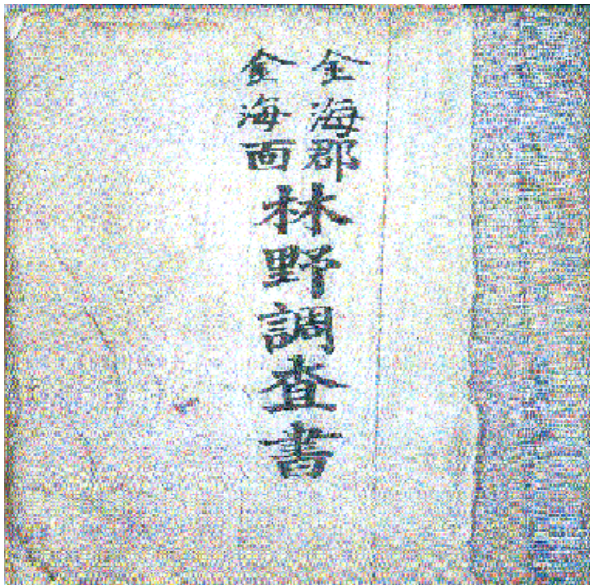 金海郡
金海面
林野調査書